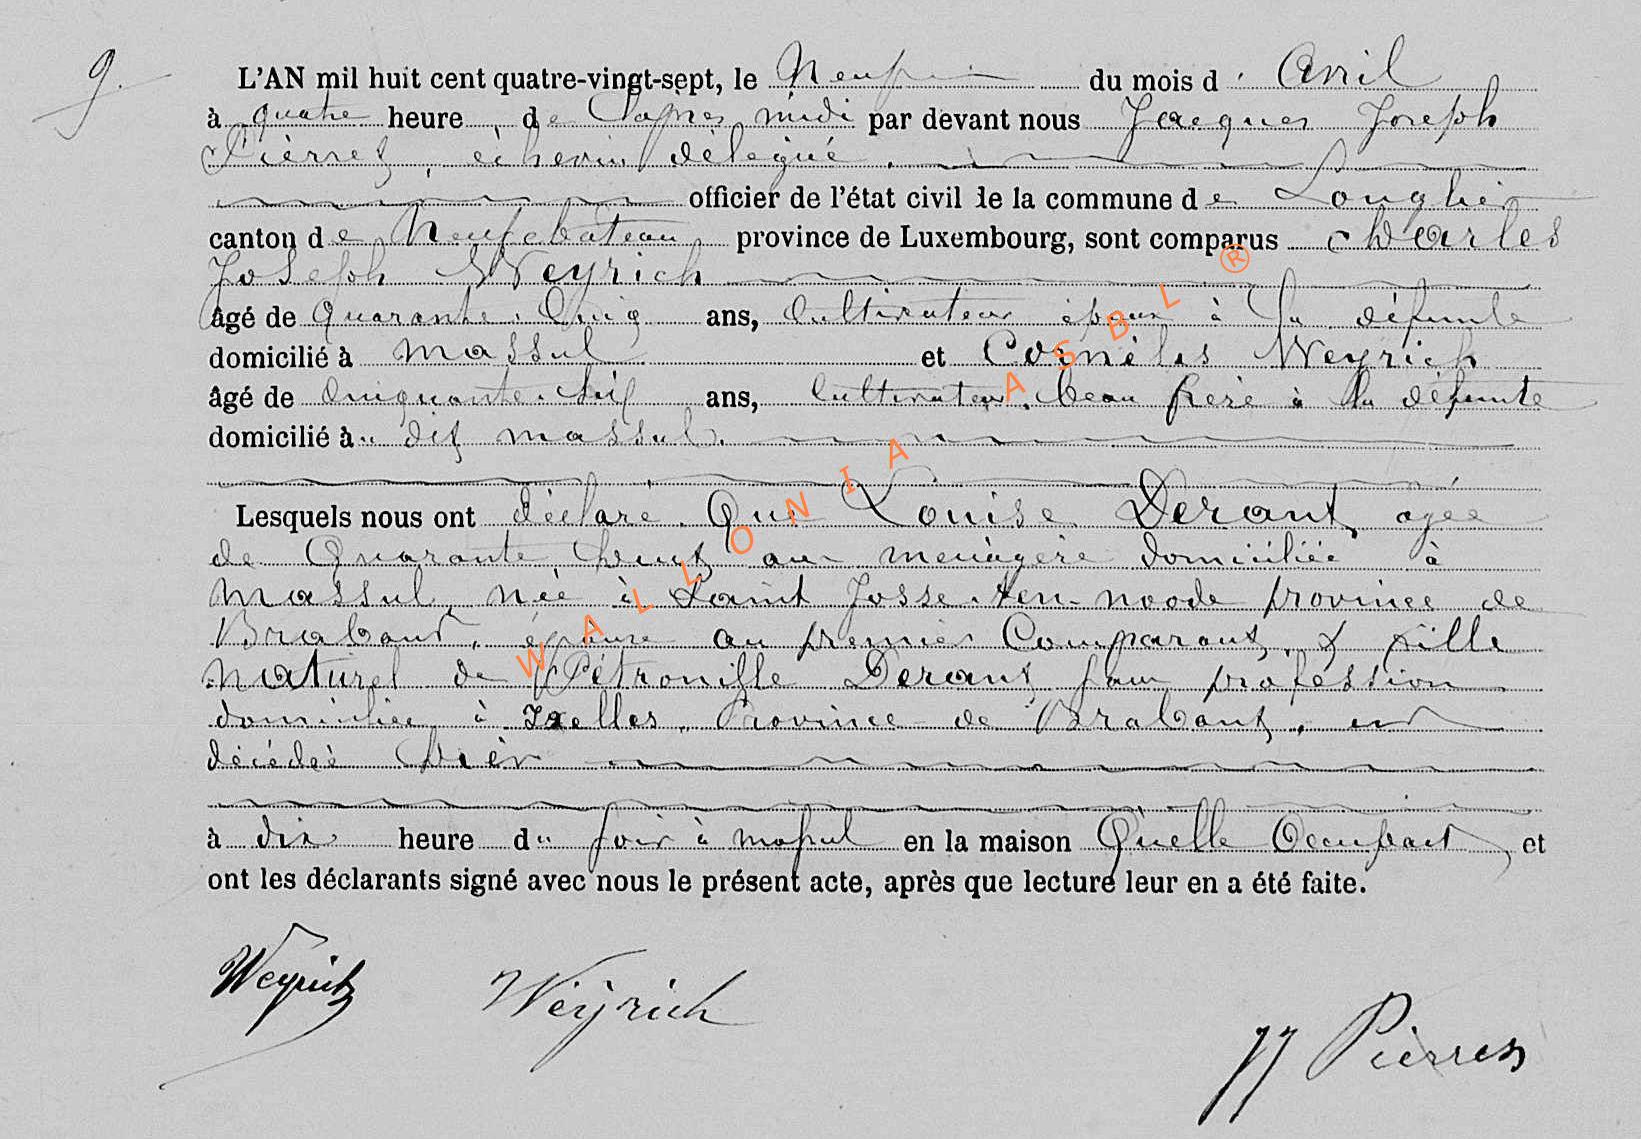 9.
L'AN mil huit cent quatre-vingt-sept, le Neuf du mois d' Avril
à quatre heure de l'apres midi par devant nous Jacques Joseph
Pierret, échevin délégué
officier de l'état civil de la commune de Longlier
canton de Neufchateau province de Luxembourg, sont comparus Charles
Joseph Weyrich
âgé de Quarante Cinq ans, Cultivateur époux à la défunte
domicilié à Massul et Cornélis Weyrich
âgé de Cinquante Six ans, Cultivateur beau frère à la défunte
domicilié à dit Massul
Lesquels nous ont déclaré Que Louise Derant agée
de Quarante ans menagère domiciliée à
Massul, née à Saint Josse-ten-noode province de
Brabant, épouse au premier Comparant, & fille
naturel de Pétronille Derant sans profession
domiciliée à Ixelles Province de Brabant, est
décédée hier
à dix heure du soir à Massul en la maison Qu'elle Occupait, et
ont les déclarants signé avec nous le présent acte, après que lecture leur en a été faite.
Weyrich Weyrich
JJ Pierret
WALLONIA ASBL ®